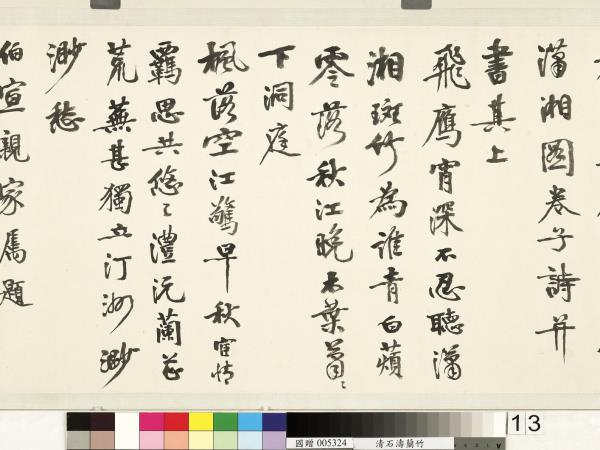 瀟湘圖卷子詩并
書其上
飛鷹宵深不忍聽瀟
湘斑竹為誰青白蘋
零落秋江晚木葉蕭〻
下洞庭
楓落空江驚早秋宦情
羈思共悠〻澧沅蘭芷
荒蕪甚獨立汀洲渺
渺愁
伯宣親家屬題
13
國贈 005324
清石濤蘭竹